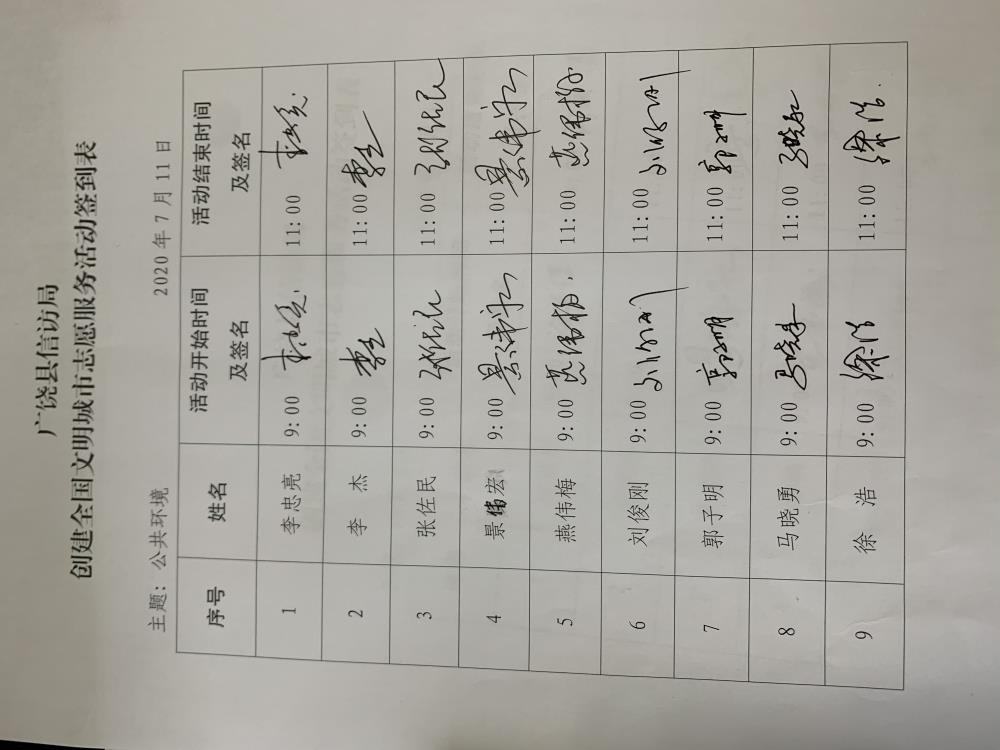 广饶县信访局
创建全国文明城市志愿服务活动签到表
主题：公共环境 2020年7月11日
序号 姓名 活动开始时间及签名 活动结束时间及签名
1 李忠亮 9:00 11:00
2 李 杰 9:00 李杰 11:00 李杰
3 张佐民 9:00 张佐民 11:00 张佐民
4 景伟宏 9:00 景伟宏 11:00 景伟宏
5 燕伟梅 9:00 燕伟梅 11:00 燕伟梅
6 刘俊刚 9:00 刘俊刚 11:00 刘俊刚
7 郭子明 9:00 郭子明 11:00 郭子明
8 马晓勇 9:00 马晓勇 11:00 马晓勇
9 徐 浩 9:00 徐浩 11:00 徐浩